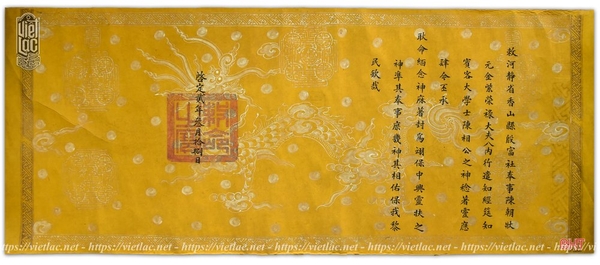 敕河靜省香山縣殷富社奉事陳朝狀
元金紫榮祿大夫入內行遣知經筵知
賓客大學士陳相公之神稔著靈應
肆今丕承
耿命緬念神庥著封爲翊保中興靈扶之
神準其奉事庶幾神其相佑保我黎
民欽哉
啓定貳年叁月拾捌日
敕命之寶
VIET LAC
https://vietlac.net - https://vietlac.net - https://vietlac.net - https://vietlac.net - https://vietlac.net